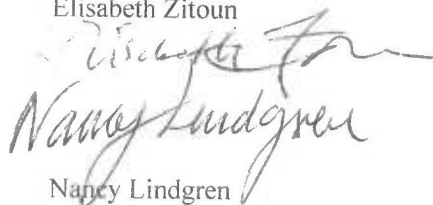 Elisabeth Zitoun
Elisabeth Z
Nancy Lindgren
Nancy Lindgren